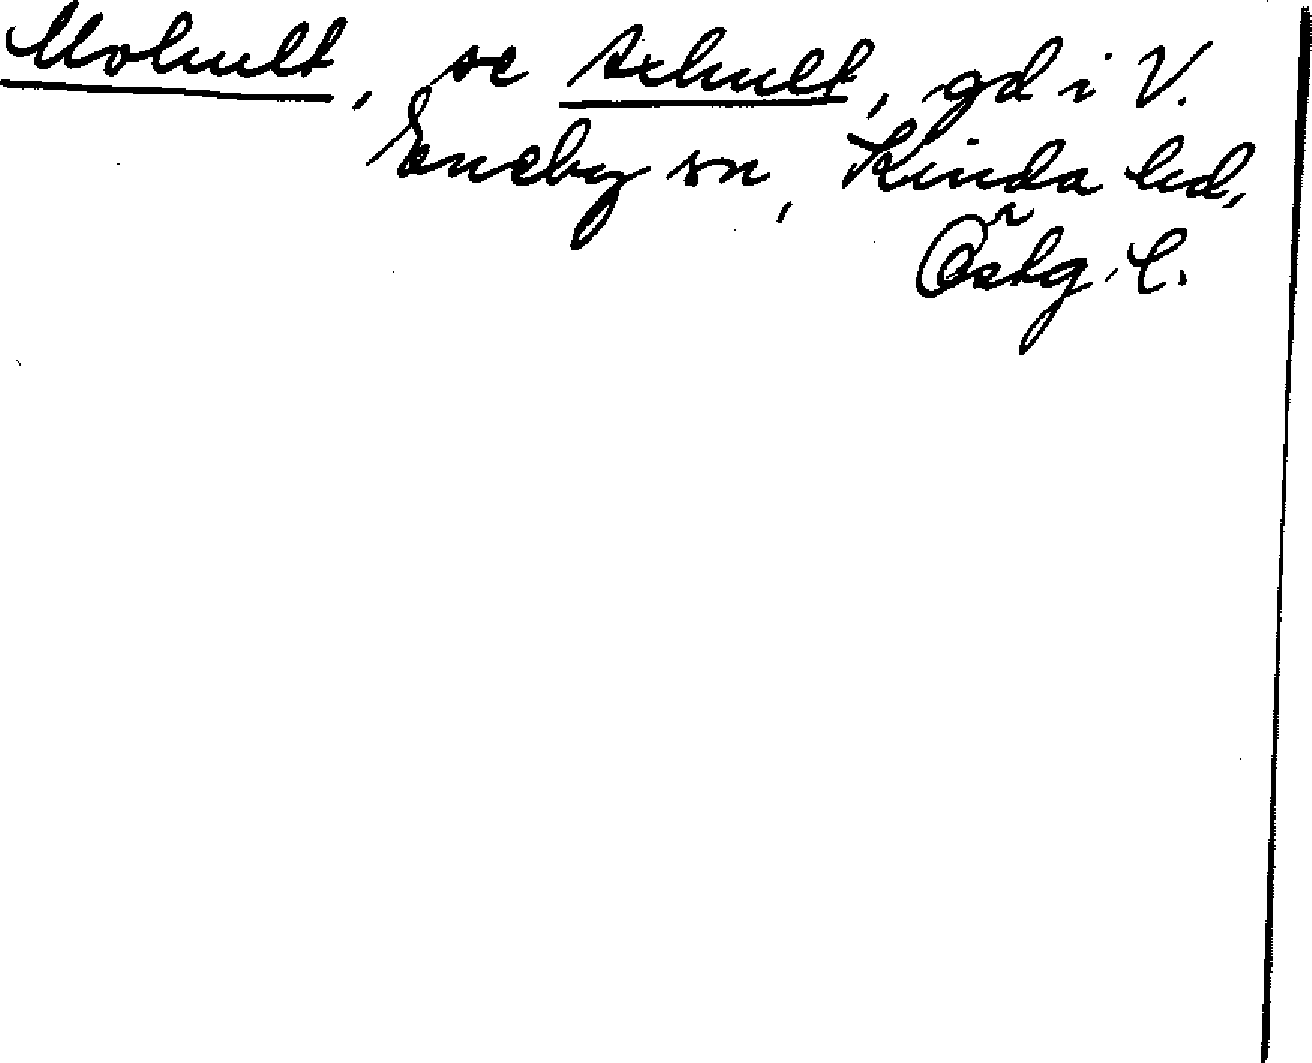 Mohult, se Axhult, gd i V.
Eneby sn, Kinda hd,
Östg. l.